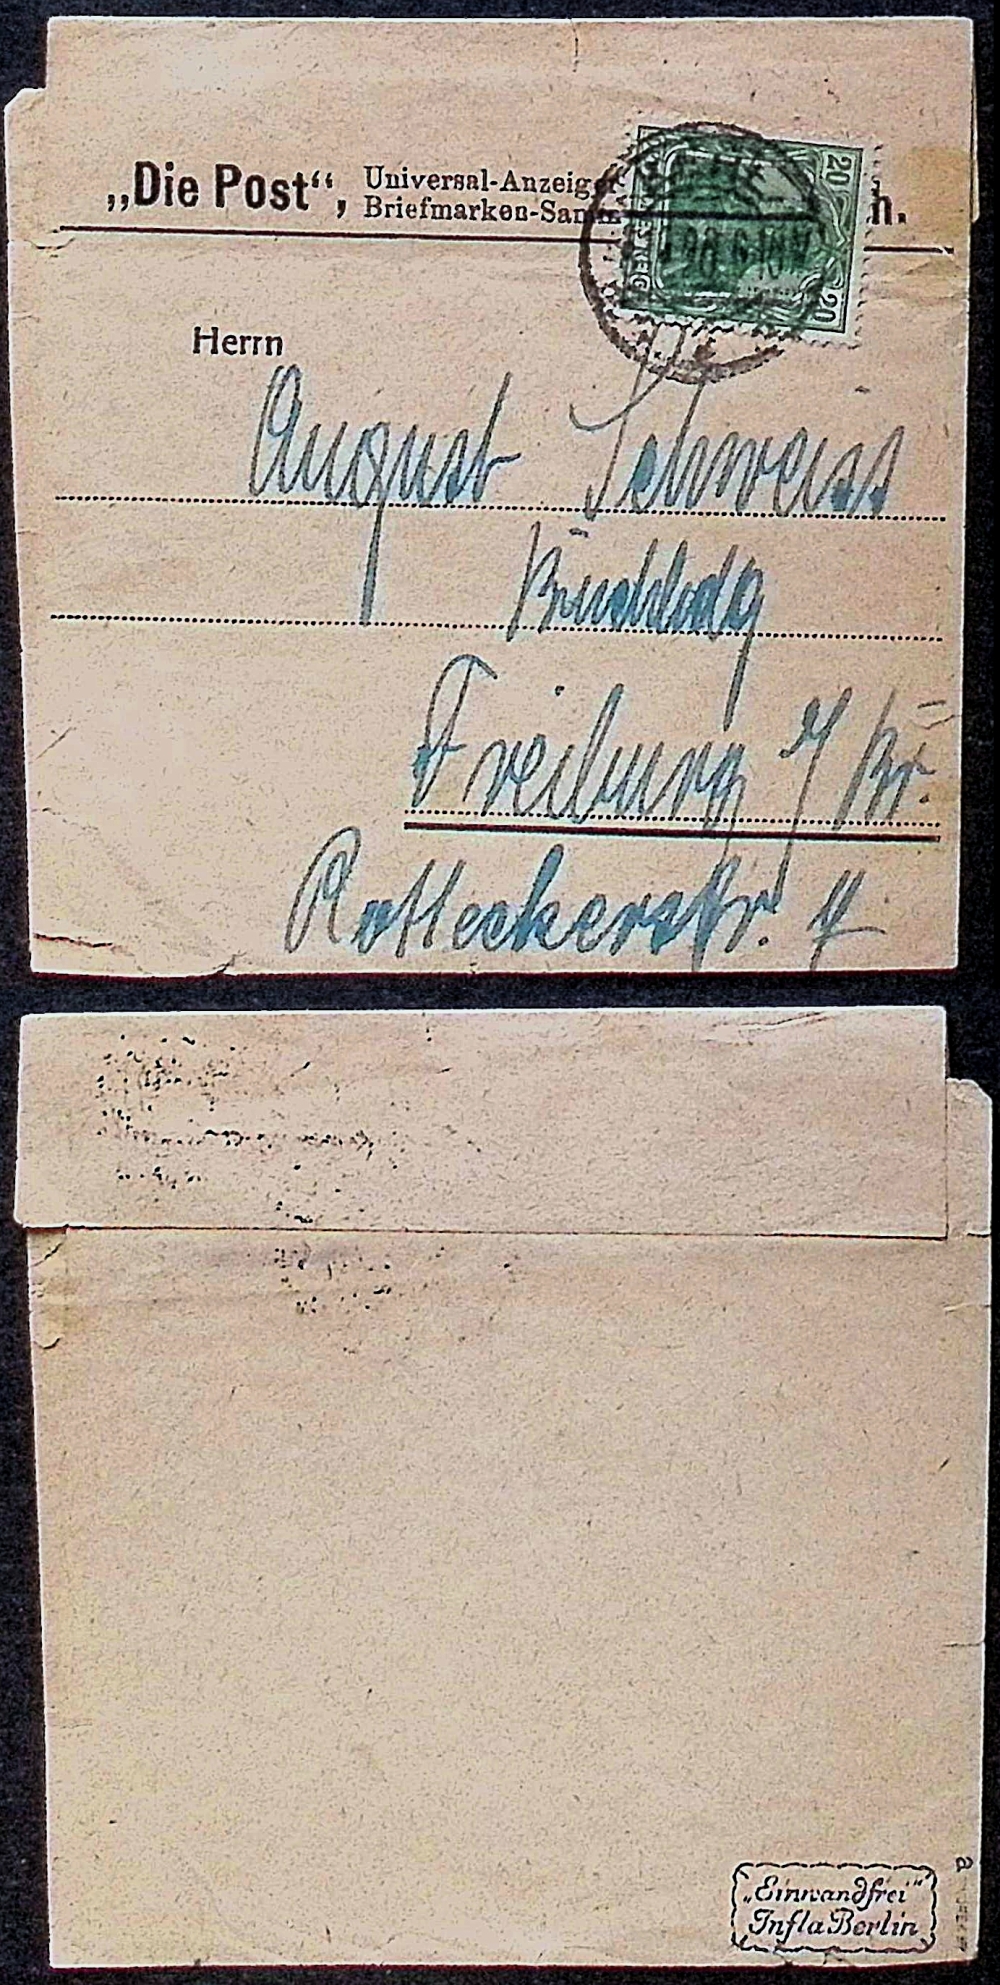 „Die Post“, Universal-Anzeiger
Briefmarken-Samm h.
20
20
Herrn
August Schweiss
Freiburg i/Br.
Rotteckerstr. 4
a
„Einwandfrei“
Infla Berlin